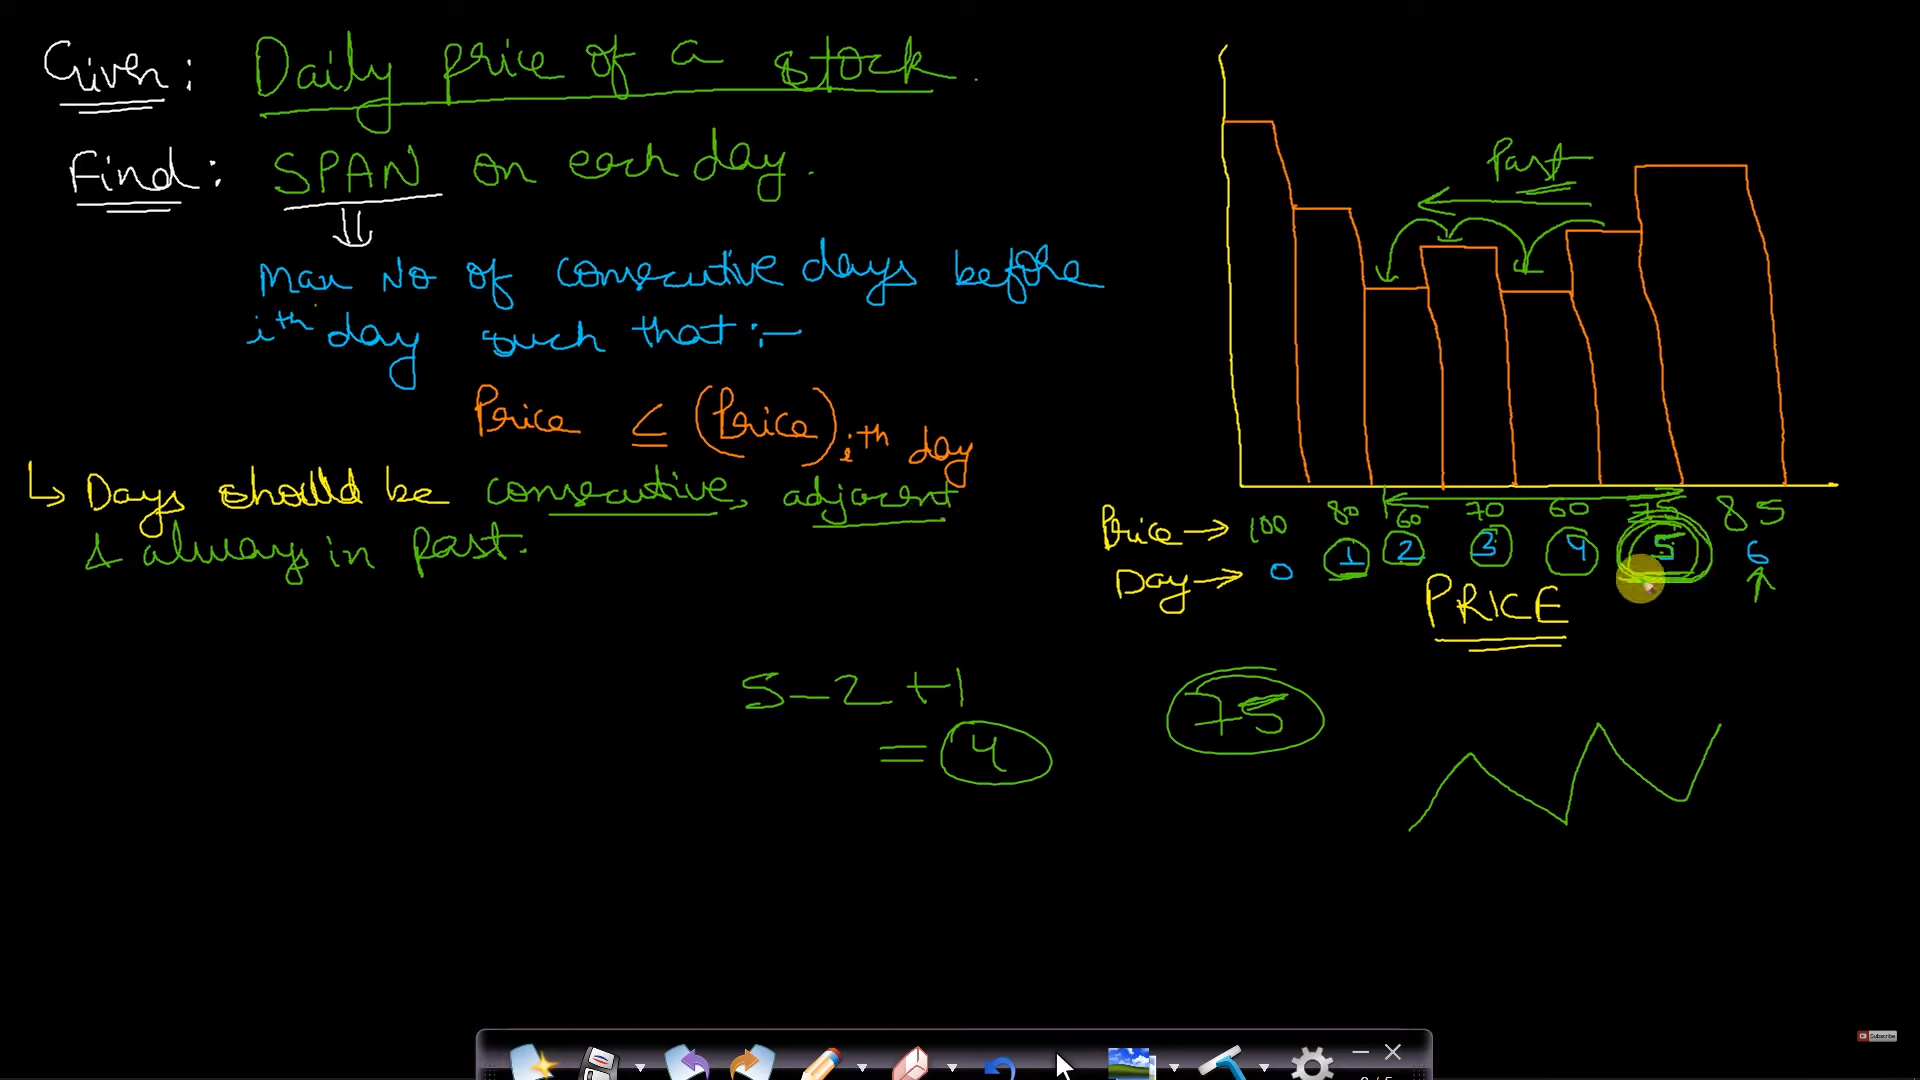 Given: Daily price of a stock.
Find: SPAN on each day.
Max No of consecutive days before
ith day such that :-
Price ≤ (Price) ith day
↳ Days should be consecutive, adjacent
& always in past.
Past
Price → 100 80 60 70 60 75 85
Day → 0 1 2 3 4 5 6
PRICE
5-2+1
= 4
75
Subscribe